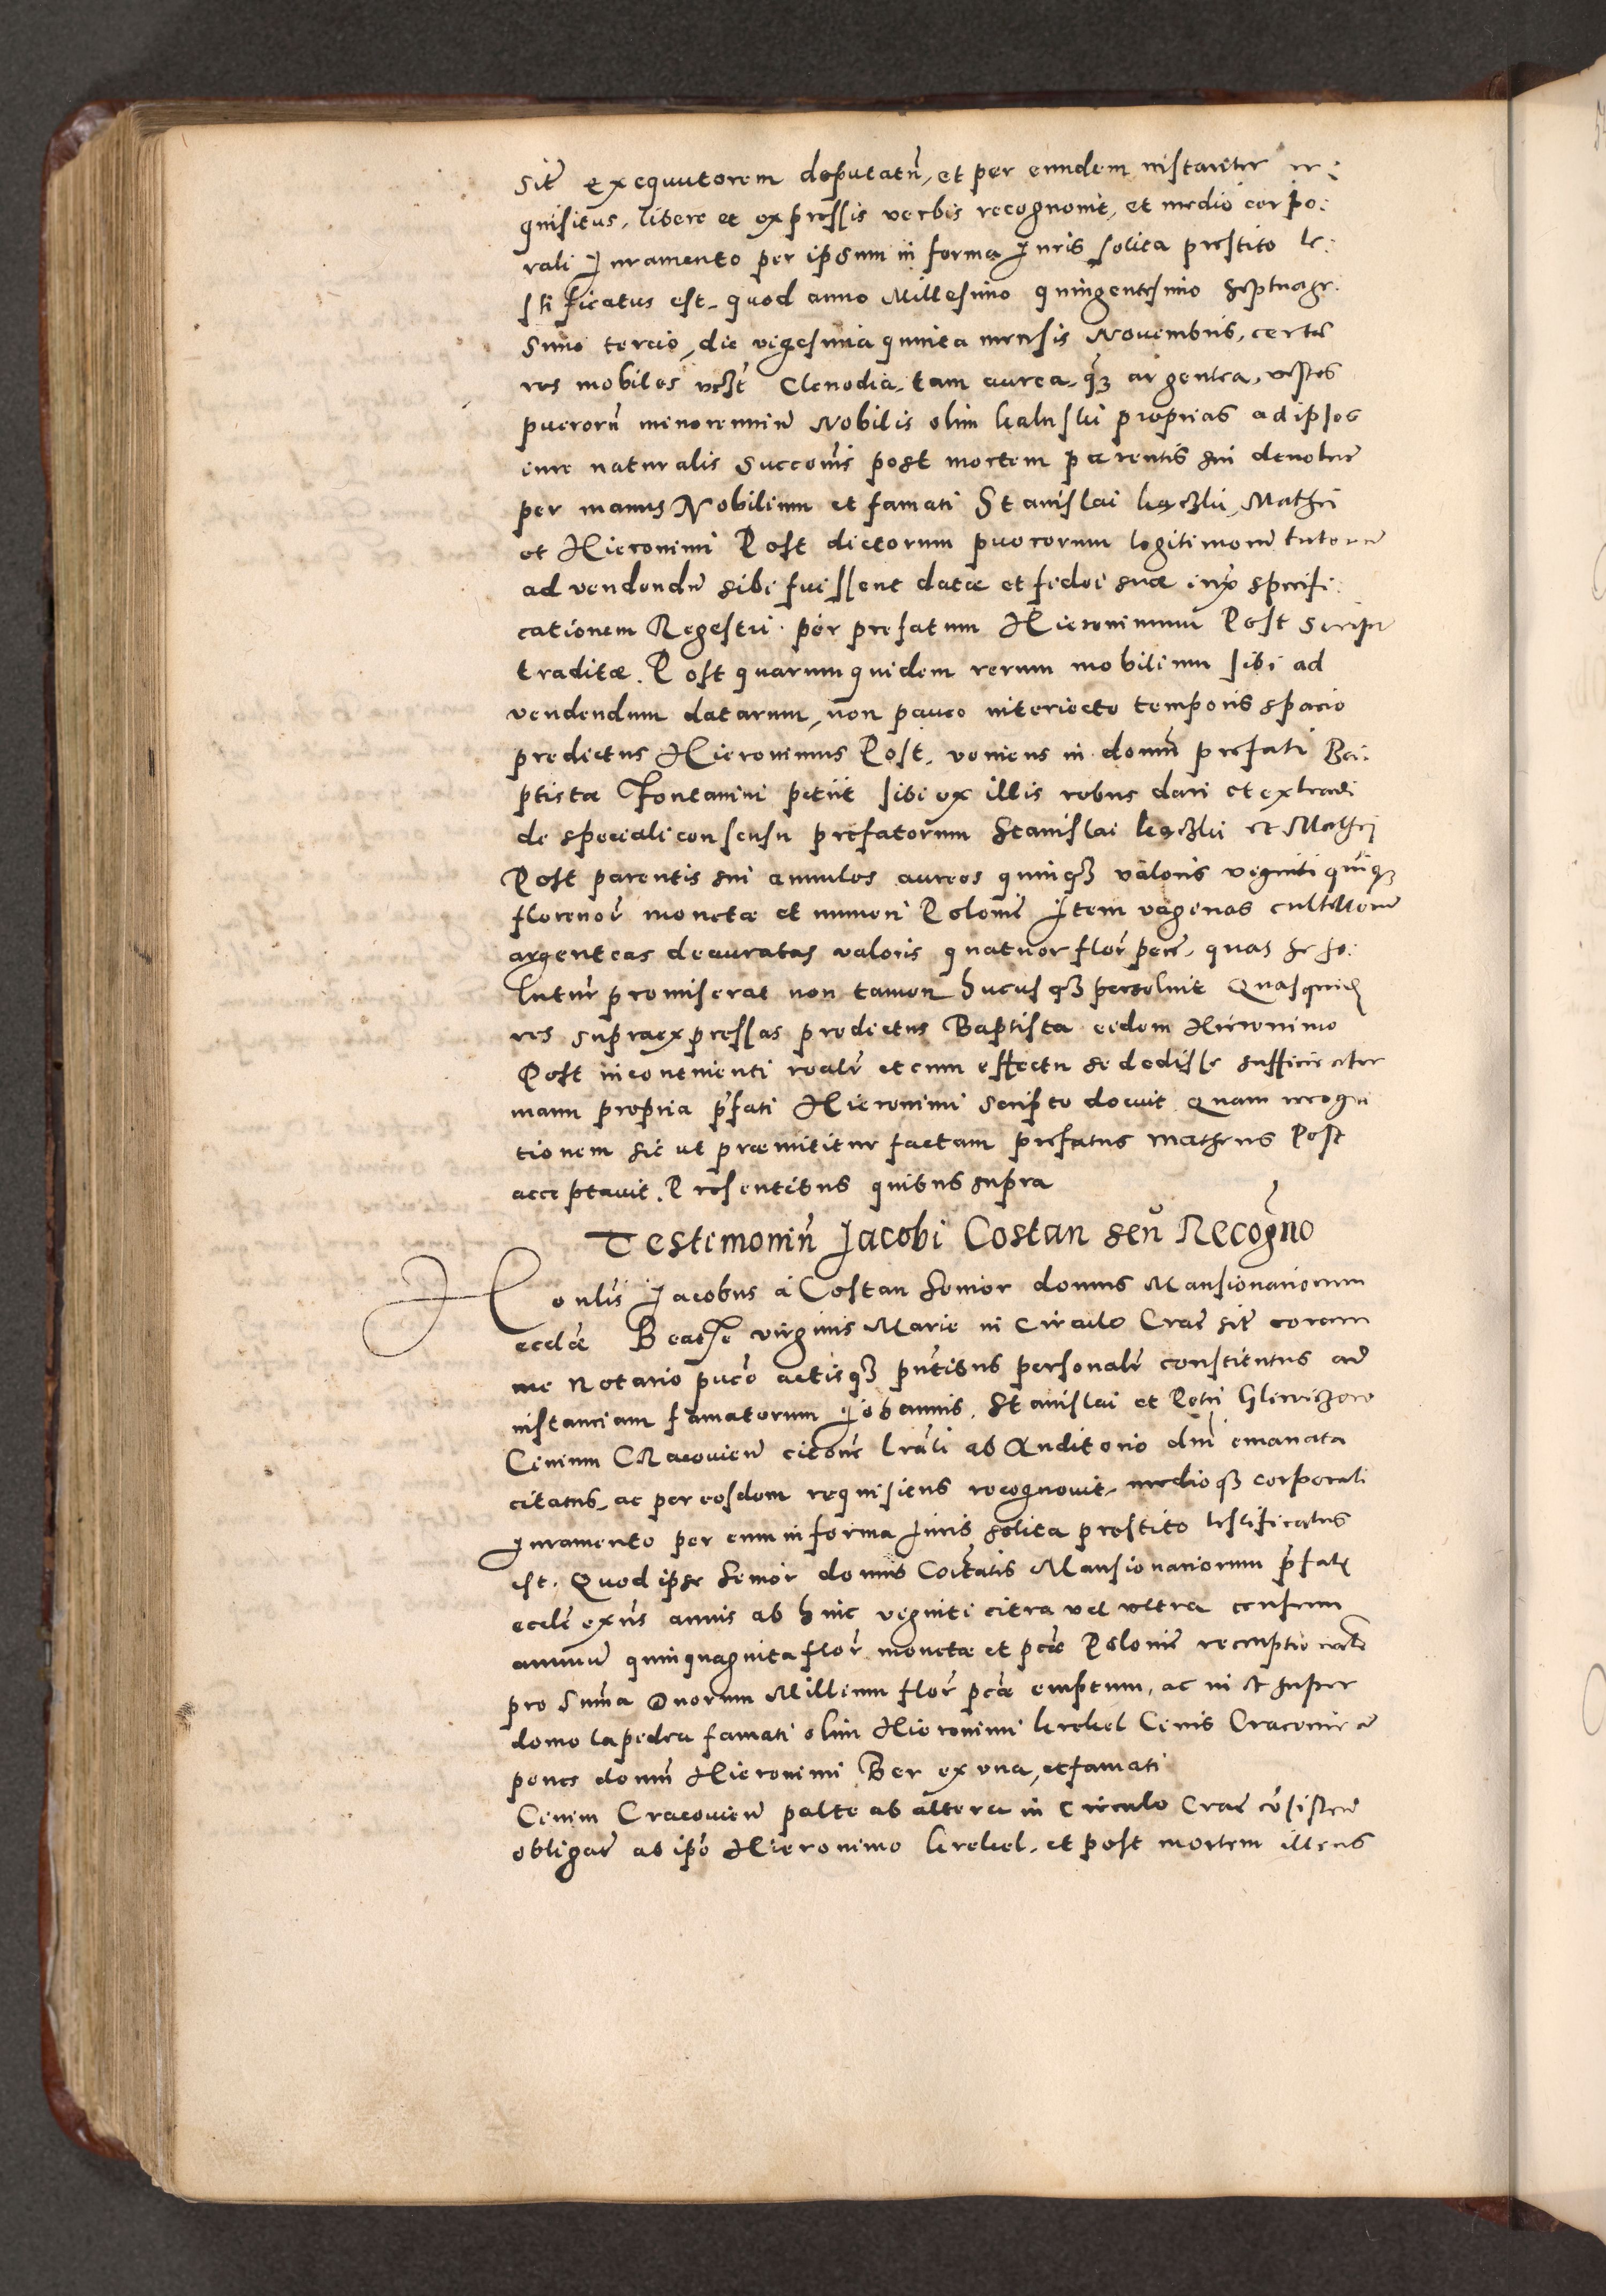 Sitm̃ exequutorem deputatũ, et per eundem instanter re:
quisitus, libere et expressis verbis recognovit, et medio corpo:
rali Juramento per ipsum in forma Juris solita prestito te:
stificatus est, quod anno Millesimo quingentesimo septuage:
simo tercio, die vigesima quinta mensis Novembris, certas
res mobiles vczt̃ Clenodia, tam aurea, qz argentea, vestes
puerorũ minorenniũ Nobilis olim proprias ad ipsos
iure naturalis Succoñis post mortem parentis sui devolut
per manus Nobilium et famati Stanislai Mathei
et Hieronimi Post dictorum puerorum legitimorũ tutorũ
ad vendendũ sibi fuissent datæ et fidei suæ iuxͣ specifi:
cationem Regestri per prefatum Hieronimum Post script
traditæ. Post quarumquidem rerum mobilium sibi ad
vendendum datarum, non pauco interiecto temporis spacio
predictus Hieronimus Post, veniens in domũ prefati Ba:
ptistæ Fontanini petiit sibi ex illis rebus dari et extradi
de speciali consensu prefatorum Stanislai et Mathei
Post parentis sui annulos aureos quinqz valoris viginti quiqz
florenorũ monetæ et numeri Polonie Item vaginas cultellorũ
argenteas deauratas valoris quatuor flor pecẽ, quas se so:
luturũ promiserat non tamen hucusqz persolvit Quasquid
res supraexpressas predictus Baptista eidem Hieronimo
Post incontinenti realr̃ et cum effectu se dedisse sufficienter
manu propria p̃fati Hieronimi scripto docuit Quam recogni
tionem sic ut præmititur factam prefatus Matheus Post
acceptavit. Presentibus quibus supra
Testimoniũ Jacobi Costan seu Recogño
Honlis̃ Jacobus à Costan Senior domus Mansionariorum
eccl̃æ Beatæ virginis Marie in Circulo Cracͣ sitẽ coram
me Notario puc̃o actisqz pñtibus personalr̃ constitutus ad
instanciam famatorum Johannis, Stanislai et Petri
Civium Cracovieñ citoñe lrali ab Auditorio dñi emanata
citatus, ac per eosdem requisitus recognovit, medioqz corporali
Juramento per eum in forma Juris solita prestito testificatus
est. Quod ipse Senior domus Coĩtatis Mansionariorum p̃fatæ
eccle͠ exñs annis ab hinc viginti citra vel ultra censum
annuũ quinquaginta flor̃ monetæ et pcæ Polonie reemptionalẽ
pro suma Duorum Millenum flor̃ pcæ emptum, ac in et super
domo lapidea famati olim Hieronimi Krekel Civis Cracovien
penes domũ Hieronimi Ber ex una, et famati
Civium Cracovieñ palte ab altera in Circulo Crac͠ cõsisteñ
obligat͠ ab ipõ Hieronimo Krekel, et post mortem illius